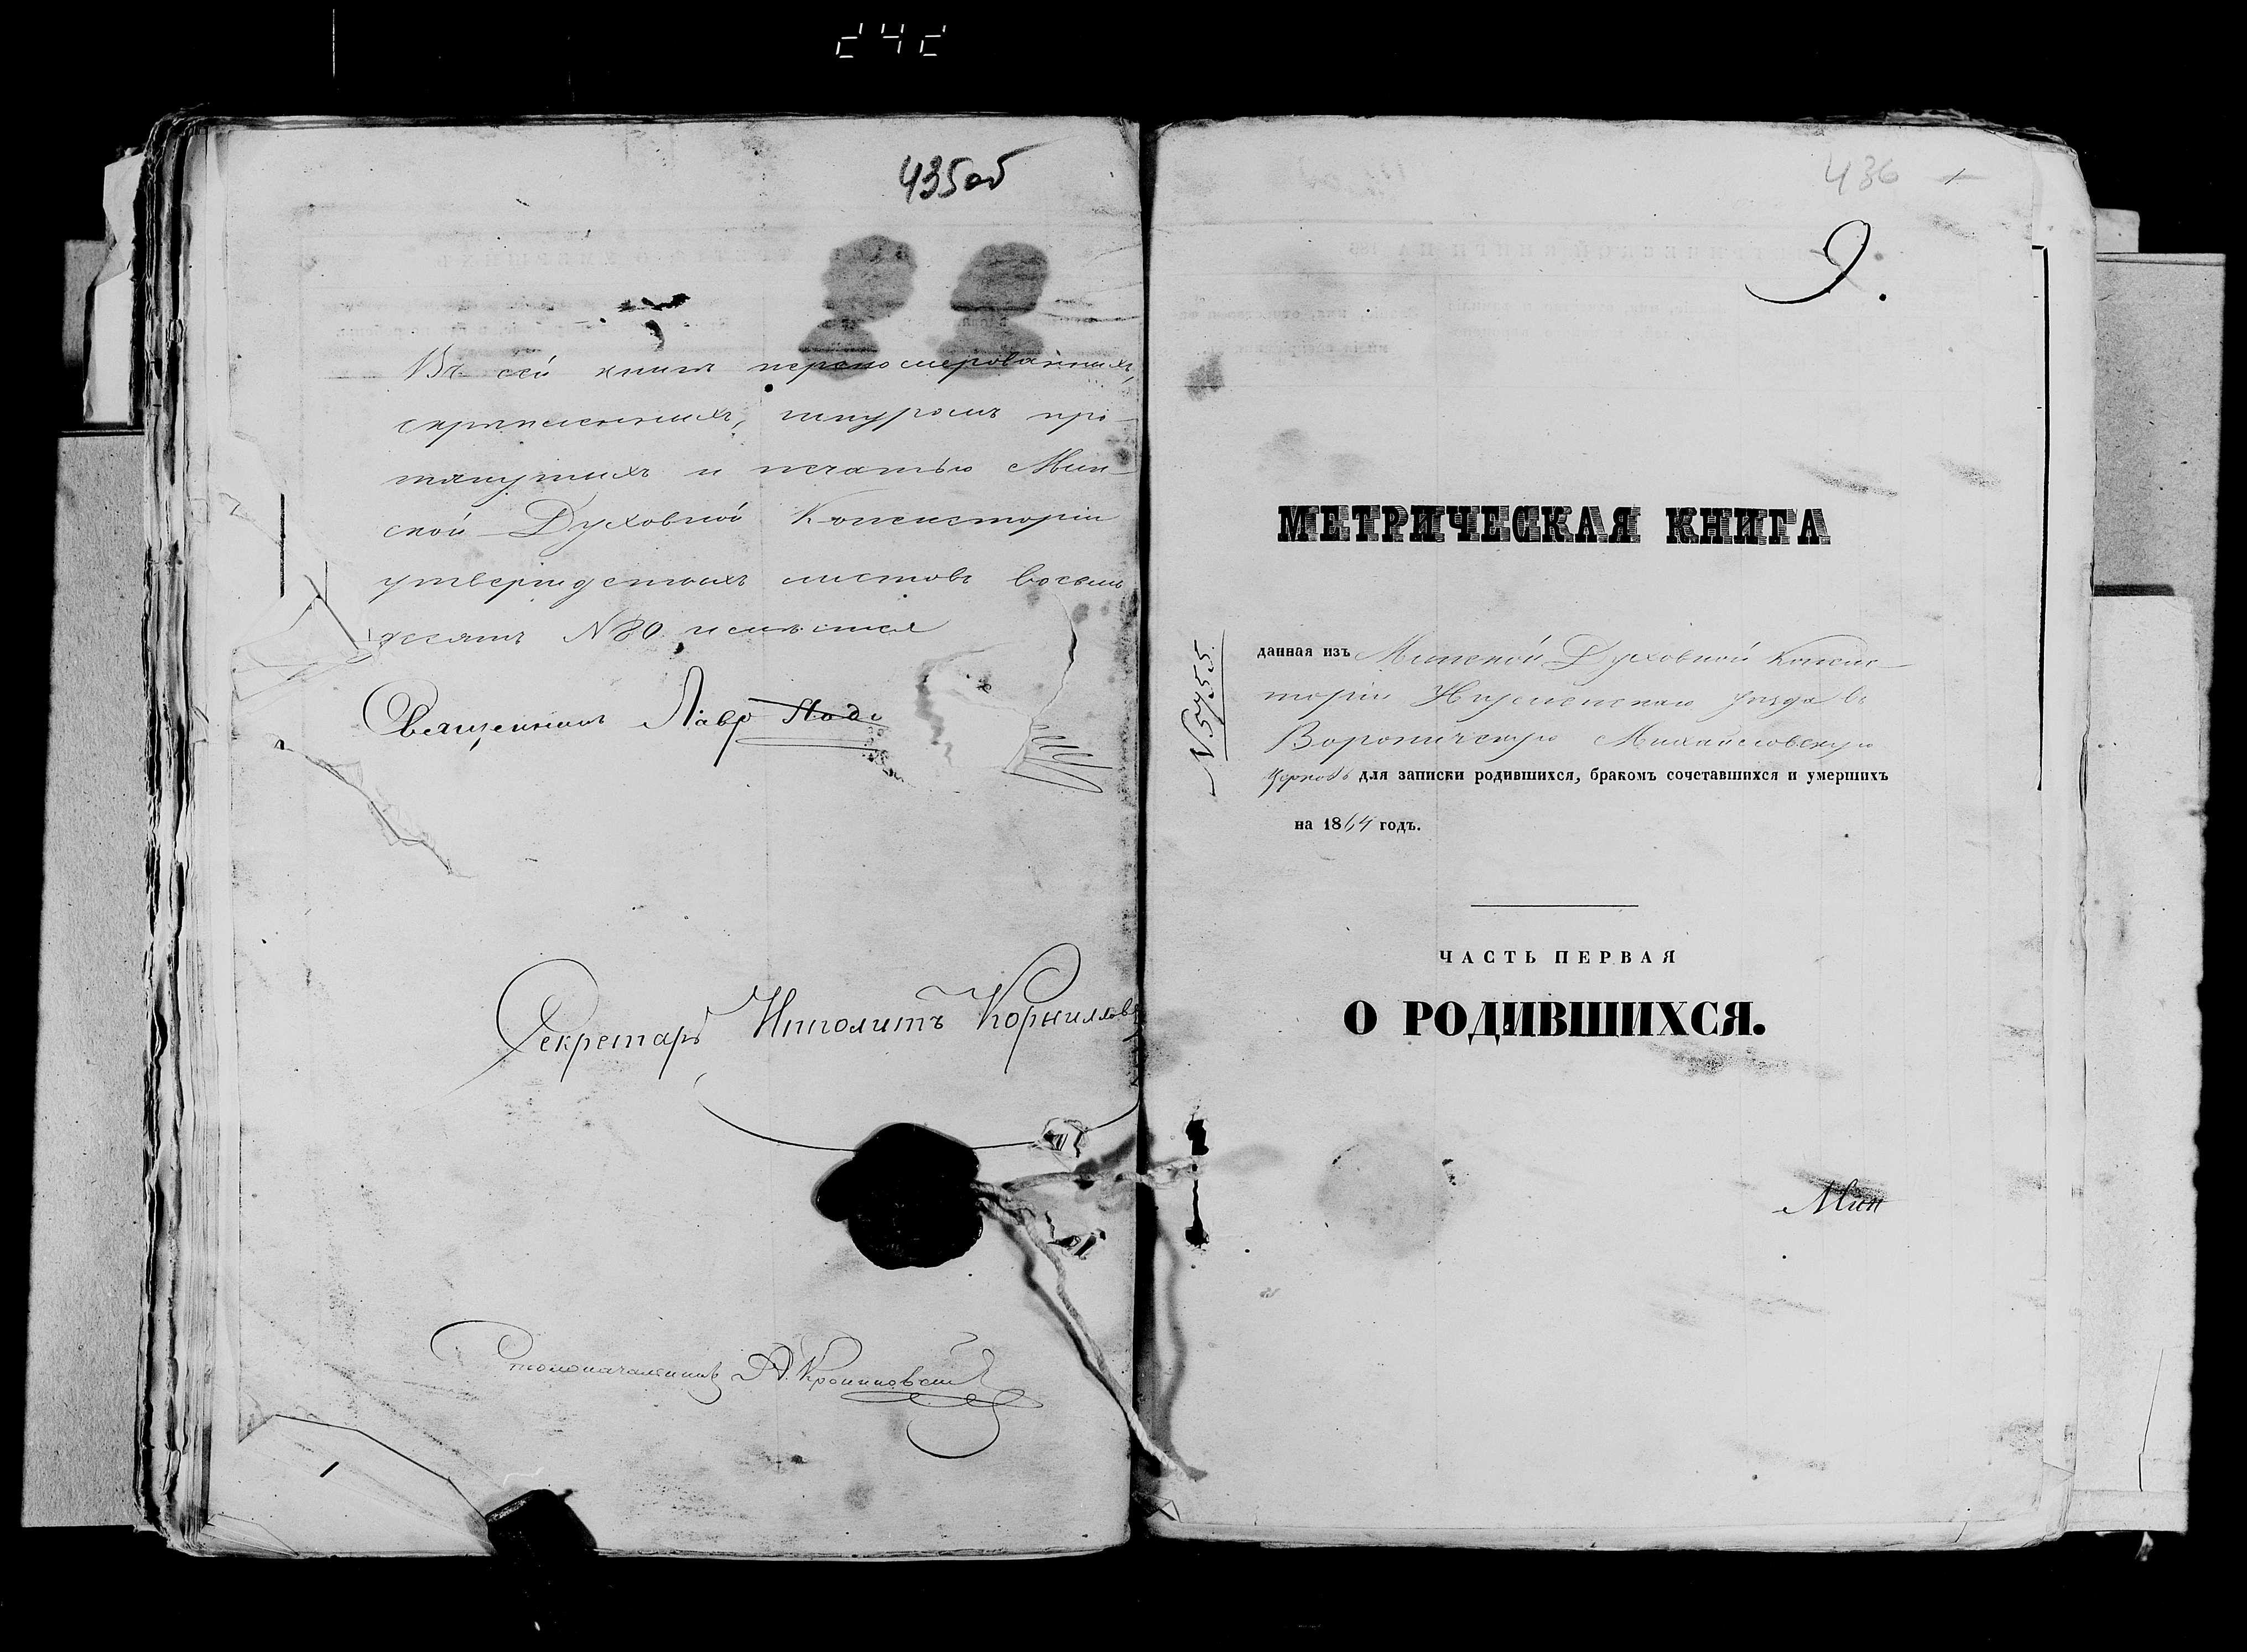 435об
Въ сей книгѣ перенумерованныхъ,
скрѣпленныхъ, шнуромъ про-
тянутыхъ и печатью Мин-
ской Духовной Консисторіи
утвержденныхъ листовъ восемь
десятъ N 80 имѣется
Священникъ Лавр
Секретарь Ипполитъ Корнилов
Столоначальникъ А.
436
9.
МЕТРИЧЕСКАЯ КНИГА
N. 5755.
данная изъ Минской Духовной Консис-
торіи Игуменскаго уѣзда въ
Вороничскую Михайловскую
церковь для записки родившихся, бракомъ сочетавшихся и умершихъ
на 1864 годъ.
ЧАСТЬ ПЕРВАЯ
О РОДИВШИХСЯ.
Мин